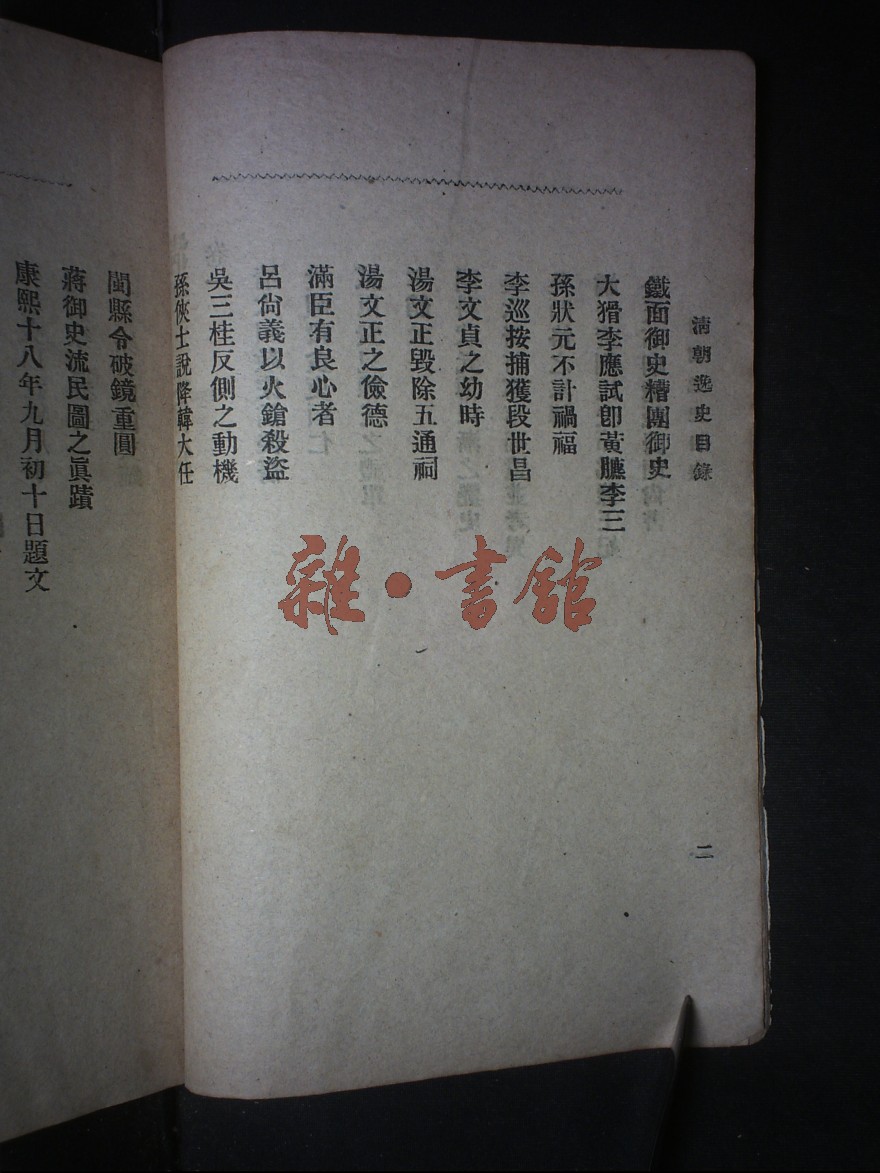 清朝逸史目錄
二
鐵面御史糟團御史
大猾李應試卽黃膘李三
孫狀元不計禍福
李巡按捕獲段世昌
李文貞之幼時
湯文正毀除五通祠
湯文正之儉德
滿臣有良心者
呂尙義以火鎗殺盜
吳三桂反側之動機
孫俠士說降韓大任
閩縣令破鏡重圓
蔣御史流民圖之眞蹟
康熙十八年九月初十日題文
雜·書館